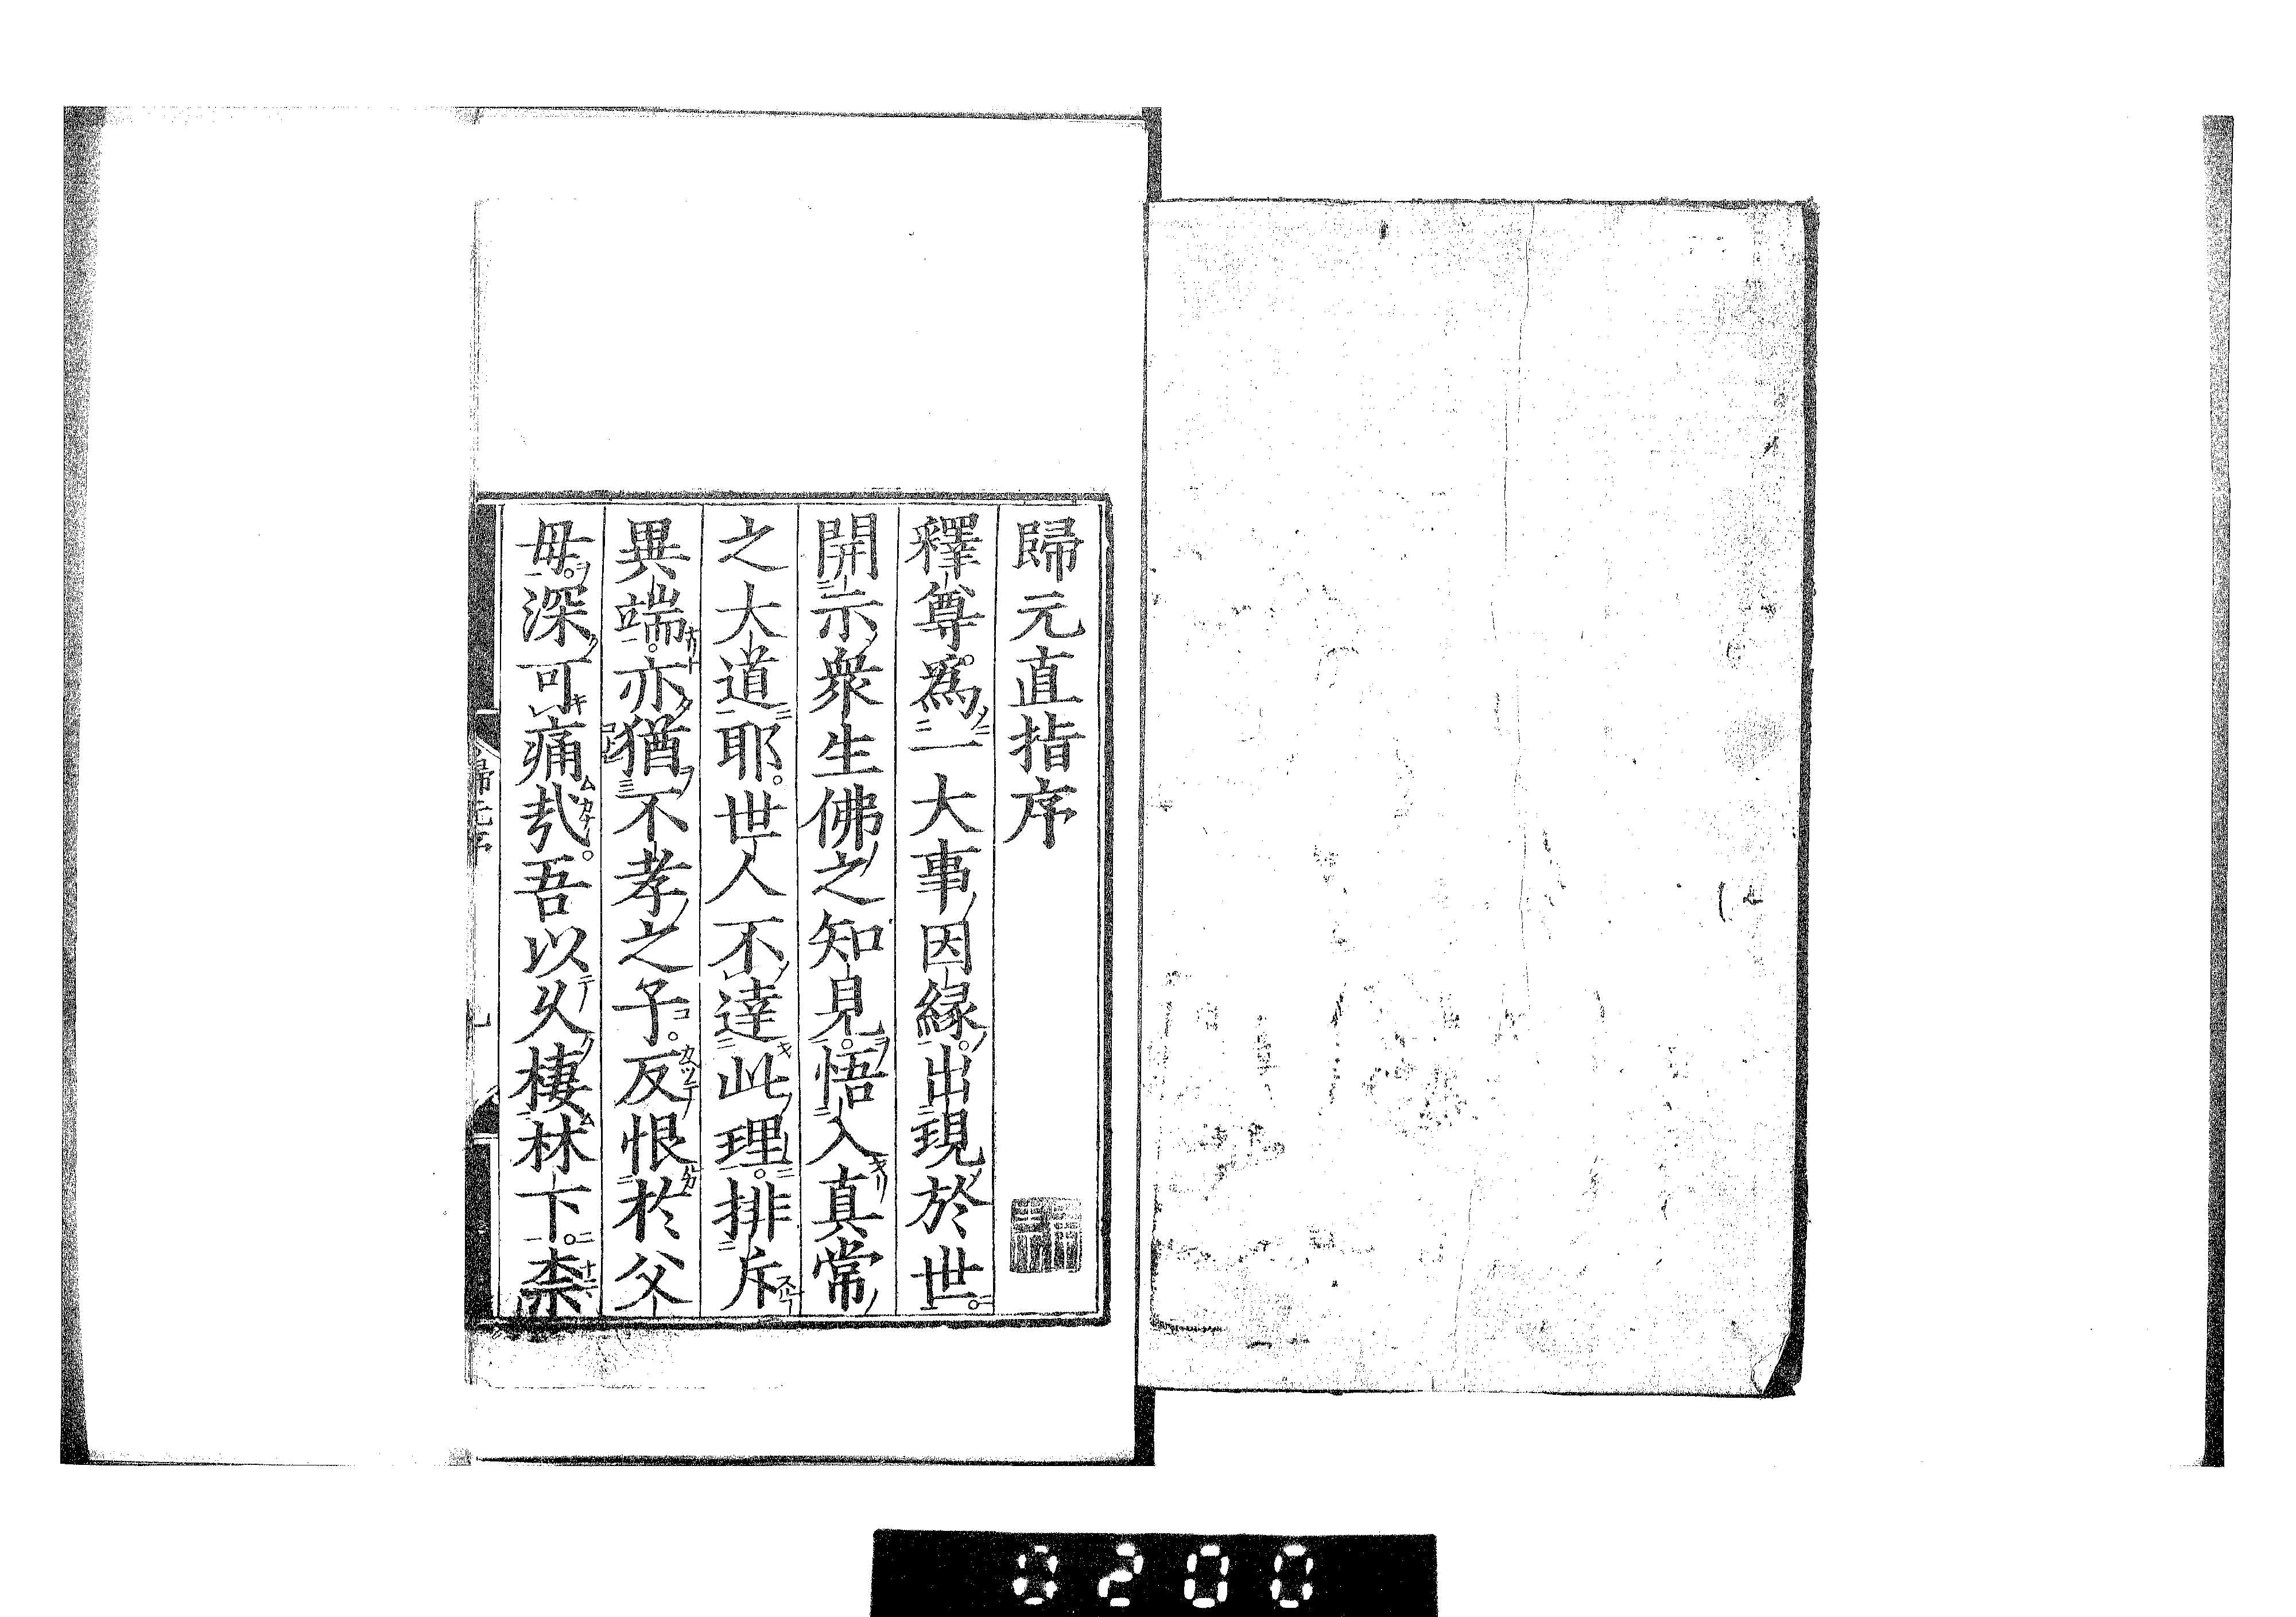 歸元直指序
釋尊爲一大事因緣出現於世
開示衆生佛之知見悟入真常
之大道耶世人不達此理排斥
異端亦猶不孝之子反恨於父
母深可痛哉吾以久棲林下柰
歸元序
0200